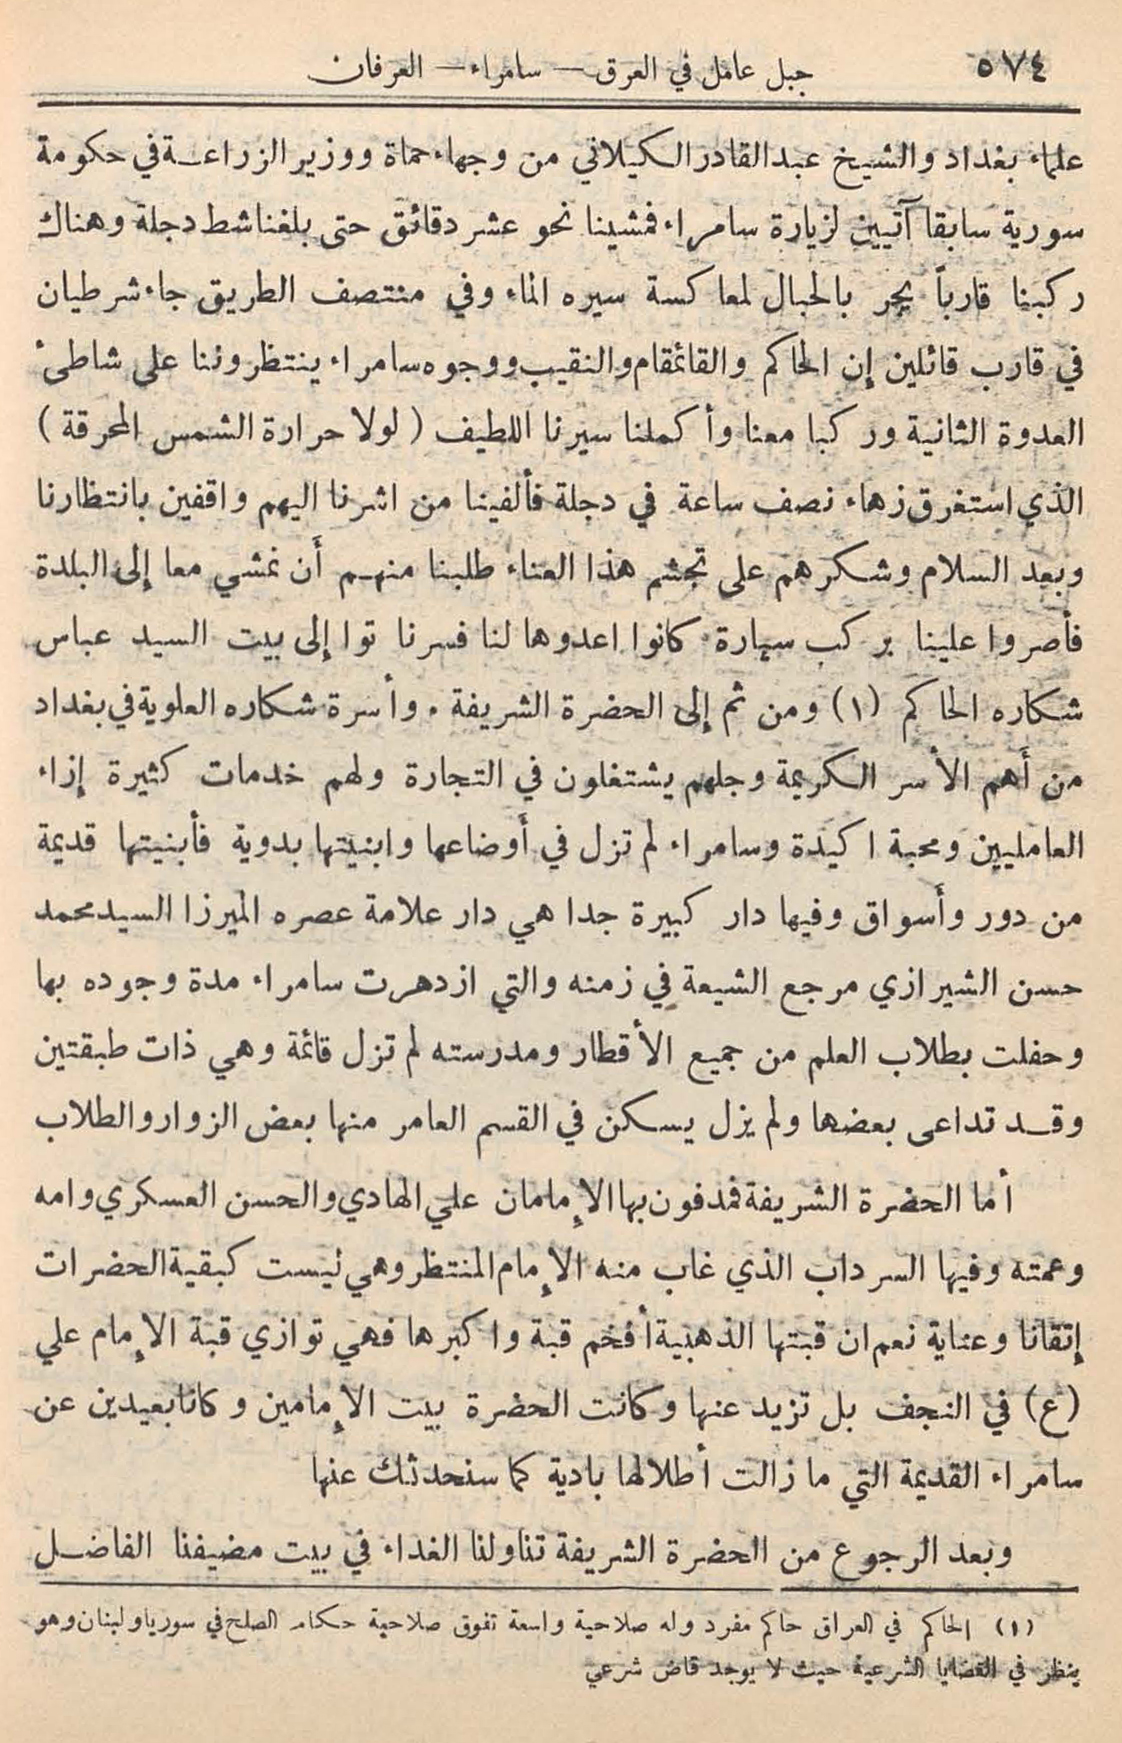 ٥٧٤
جبل عامل في العرق — سامراء — العرفان
علماء بغداد والشيخ عبد القادر الكيلاني من وجهاء حماة ووزير الزراعة في حكومة
سورية سابقا آتيين لزيارة سامراء فمشينا نحو عشر دقائق حتى بلغنا شط دجلة وهناك
ركبنا قارباً يجر بالحبال لمعاكسة سيره الماء وفي منتصف الطريق جاء شرطيان
في قارب قائلين إن الحاكم والقائمقام والنقيب ووجوه سامراء ينتظروننا على شاطئ
العدوة الثانية وركبا معنا وأكملنا سيرنا اللطيف ( لولا حرارة الشمس المحرقة )
الذي استغرق زهاء نصف ساعة في دجلة فألفينا من اشرنا اليهم واقفين بانتظارنا
وبعد السلام وشكرهم على تجشم هذا العناء طلبنا منهم أن نمشي معا إلى البلدة
فأصروا علينا بركب سيارة كانوا اعدوها لنا فسرنا توا إلى بيت السيد عباس
شكاره الحاكم (١) ومن ثم إلى الحضرة الشريفة . وأسرة شكاره العلوية في بغداد
من أهم الأسر الكريمة وجلهم يشتغلون في التجارة ولهم خدمات كثيرة إزاء
العامليين ومحبة اكيدة وسامراء لم تزل في أوضاعها وابنيتها بدوية فأبنيتها قديمة
من دور وأسواق وفيها دار كبيرة جدا هي دار علامة عصره الميرزا السيد محمد
حسن الشيرازي مرجع الشيعة في زمنه والتي ازدهرت سامراء مدة وجوده بها
وحفلت بطلاب العلم من جميع الأقطار ومدرسته لم تزل قائمة وهي ذات طبقتين
وقد تداعى بعضها ولم يزل يسكن في القسم العامر منها بعض الزوار والطلاب
أما الحضرة الشريفة فمدفون بها الإمامان علي الهادي والحسن العسكري وامه
وعمته وفيها السرداب الذي غاب منه الإمام المنتظر وهي ليست كبقية الحضرات
إتقانا وعناية نعم ان قبتها الذهبية أفخم قبة واكبرها فهي توازي قبة الإمام علي
(ع) في النجف بل تزيد عنها وكانت الحضرة بيت الإمامين وكانا بعيدين عن
سامراء القديمة التي ما زالت أطلالها بادية كما سنحدثك عنها
وبعد الرجوع من الحضرة الشريفة تناولنا الغداء في بيت مضيفنا الفاضل
(١) الحاكم في العراق حاكم مفرد وله صلاحية واسعة تفوق صلاحية حكام الصلح في سوريا ولبنان وهو
ينظر في القضايا الشرعية حيث لا يوجد قاض شرعي